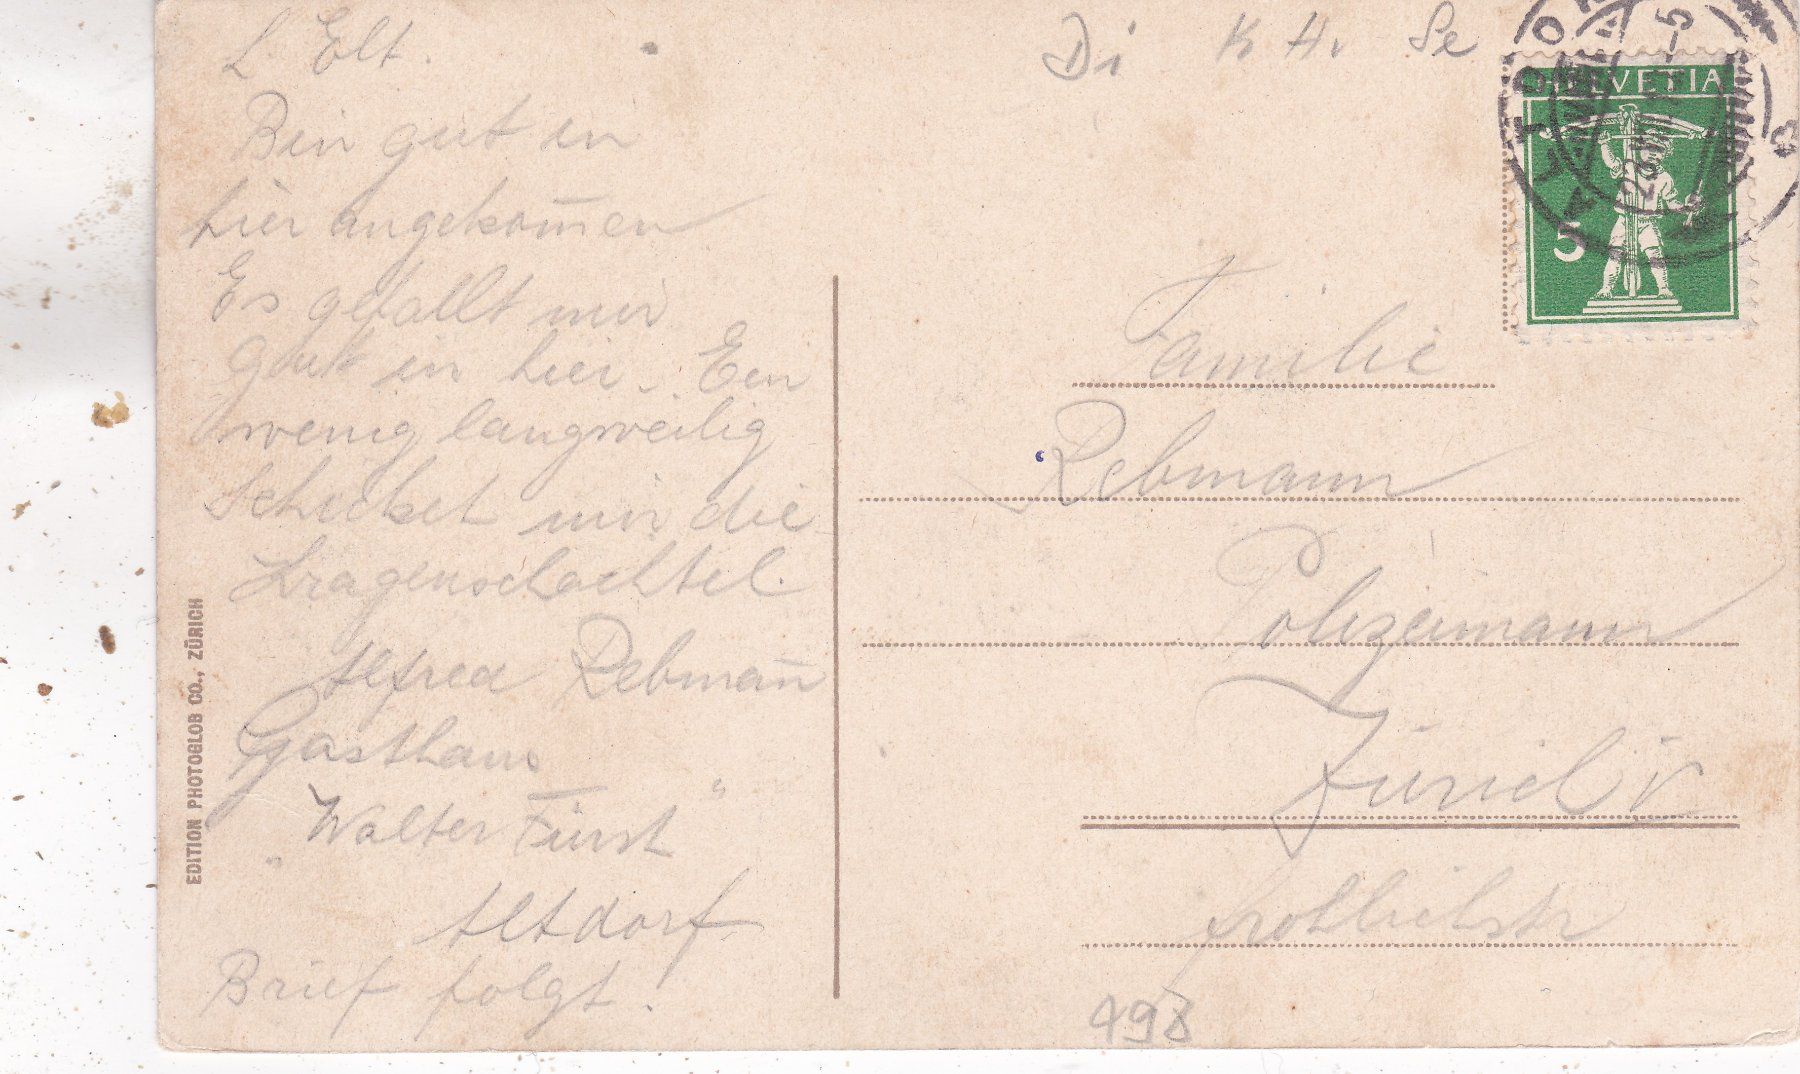 L. Elt.
Bin gut in
hier angekom̄en
Es gefallt mir
gut in hier. Ein
wenig langweilig
Schicket mir die
Kragenschachtel.
Alfred Rebman̄
Gasthaus
"Walter Fürst"
Altdorf
Brief folgt!
EDITION PHOTOGLOB CO., ZÜRICH
Di K H. Se
ALTDORF
HELVETIA
5
Familie
Rebmann
Polizeimann
Zürich V
498